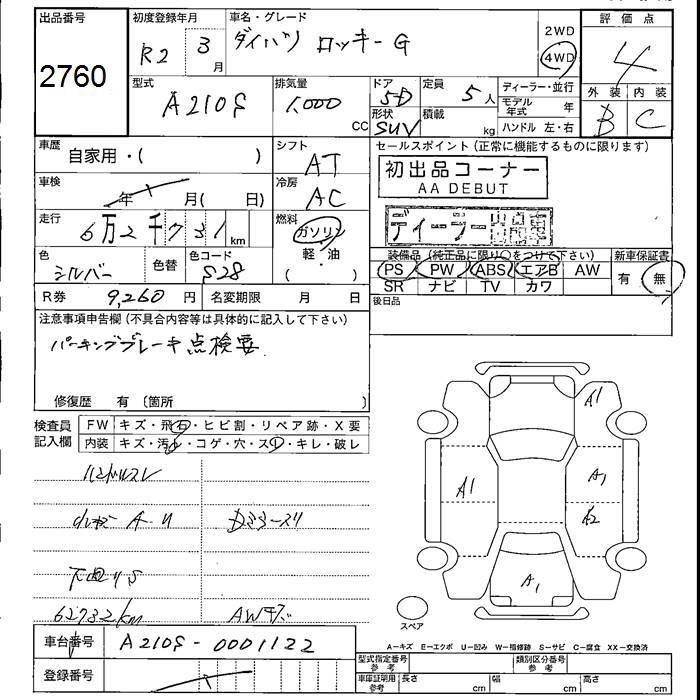 出品番号
2760
初度登録年月
R2 3月
車名・グレード
ダイハツ ロッキー G
2WD
4WD
評価点
4
外装 内装
B C
型式
A210S
排気量
1,000 CC
ドア
5D
形状
SUV
定員
5人
積載
kg
ディーラー・並行
モデル年式 年
ハンドル 左・右
車歴
自家用・( )
シフト
AT
セールスポイント(正常に機能するものに限ります)
初出品コーナー
AA DEBUT
ディーラー出品車
車検
年 月( 日)
冷房
AC
走行
6万2千731km
燃料
ガソリン
軽・油
( )
色
シルバー
色替
色コード
S28
装備品(純正品に限り○をつけて下さい)
PS PW ABS エアB AW
SR ナビ TV カワ
新車保証書
有 無
R券 9,260円
名変期限 月 日
後日品
注意事項申告欄(不具合内容等は具体的に記入して下さい)
パーキングブレーキ点検要
修復歴 有(箇所 )
検査員記入欄
FW キズ・飛石・ヒビ割・リペア跡・X要
内装 キズ・汚れ・コゲ・穴・スレ・キレ・破レ
ハンドルスレ
A・U
下回りS
62732km
AWキズ
A1
A1
A1
A2
A1
スペア
A-キズ E-エクボ U-凹み W-補修跡 S-サビ C-腐食 XX-交換済
車台番号
A210S-0001122
登録番号
型式指定番号参考
類別区分番号参考
車庫証明用参考
長さ cm
幅 cm
高さ cm